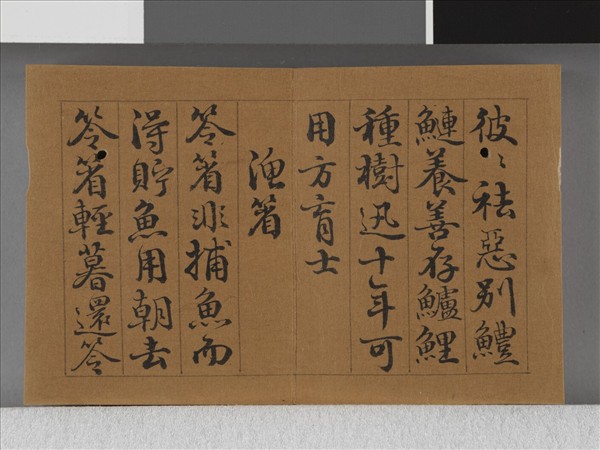 彼〻祛惡別鱧
鰱養善存鱸鯉
種樹迅十年可
用方育士
漁箵
笭箵非捕魚而
得貯魚用朝去
笭箵輕暮還笭